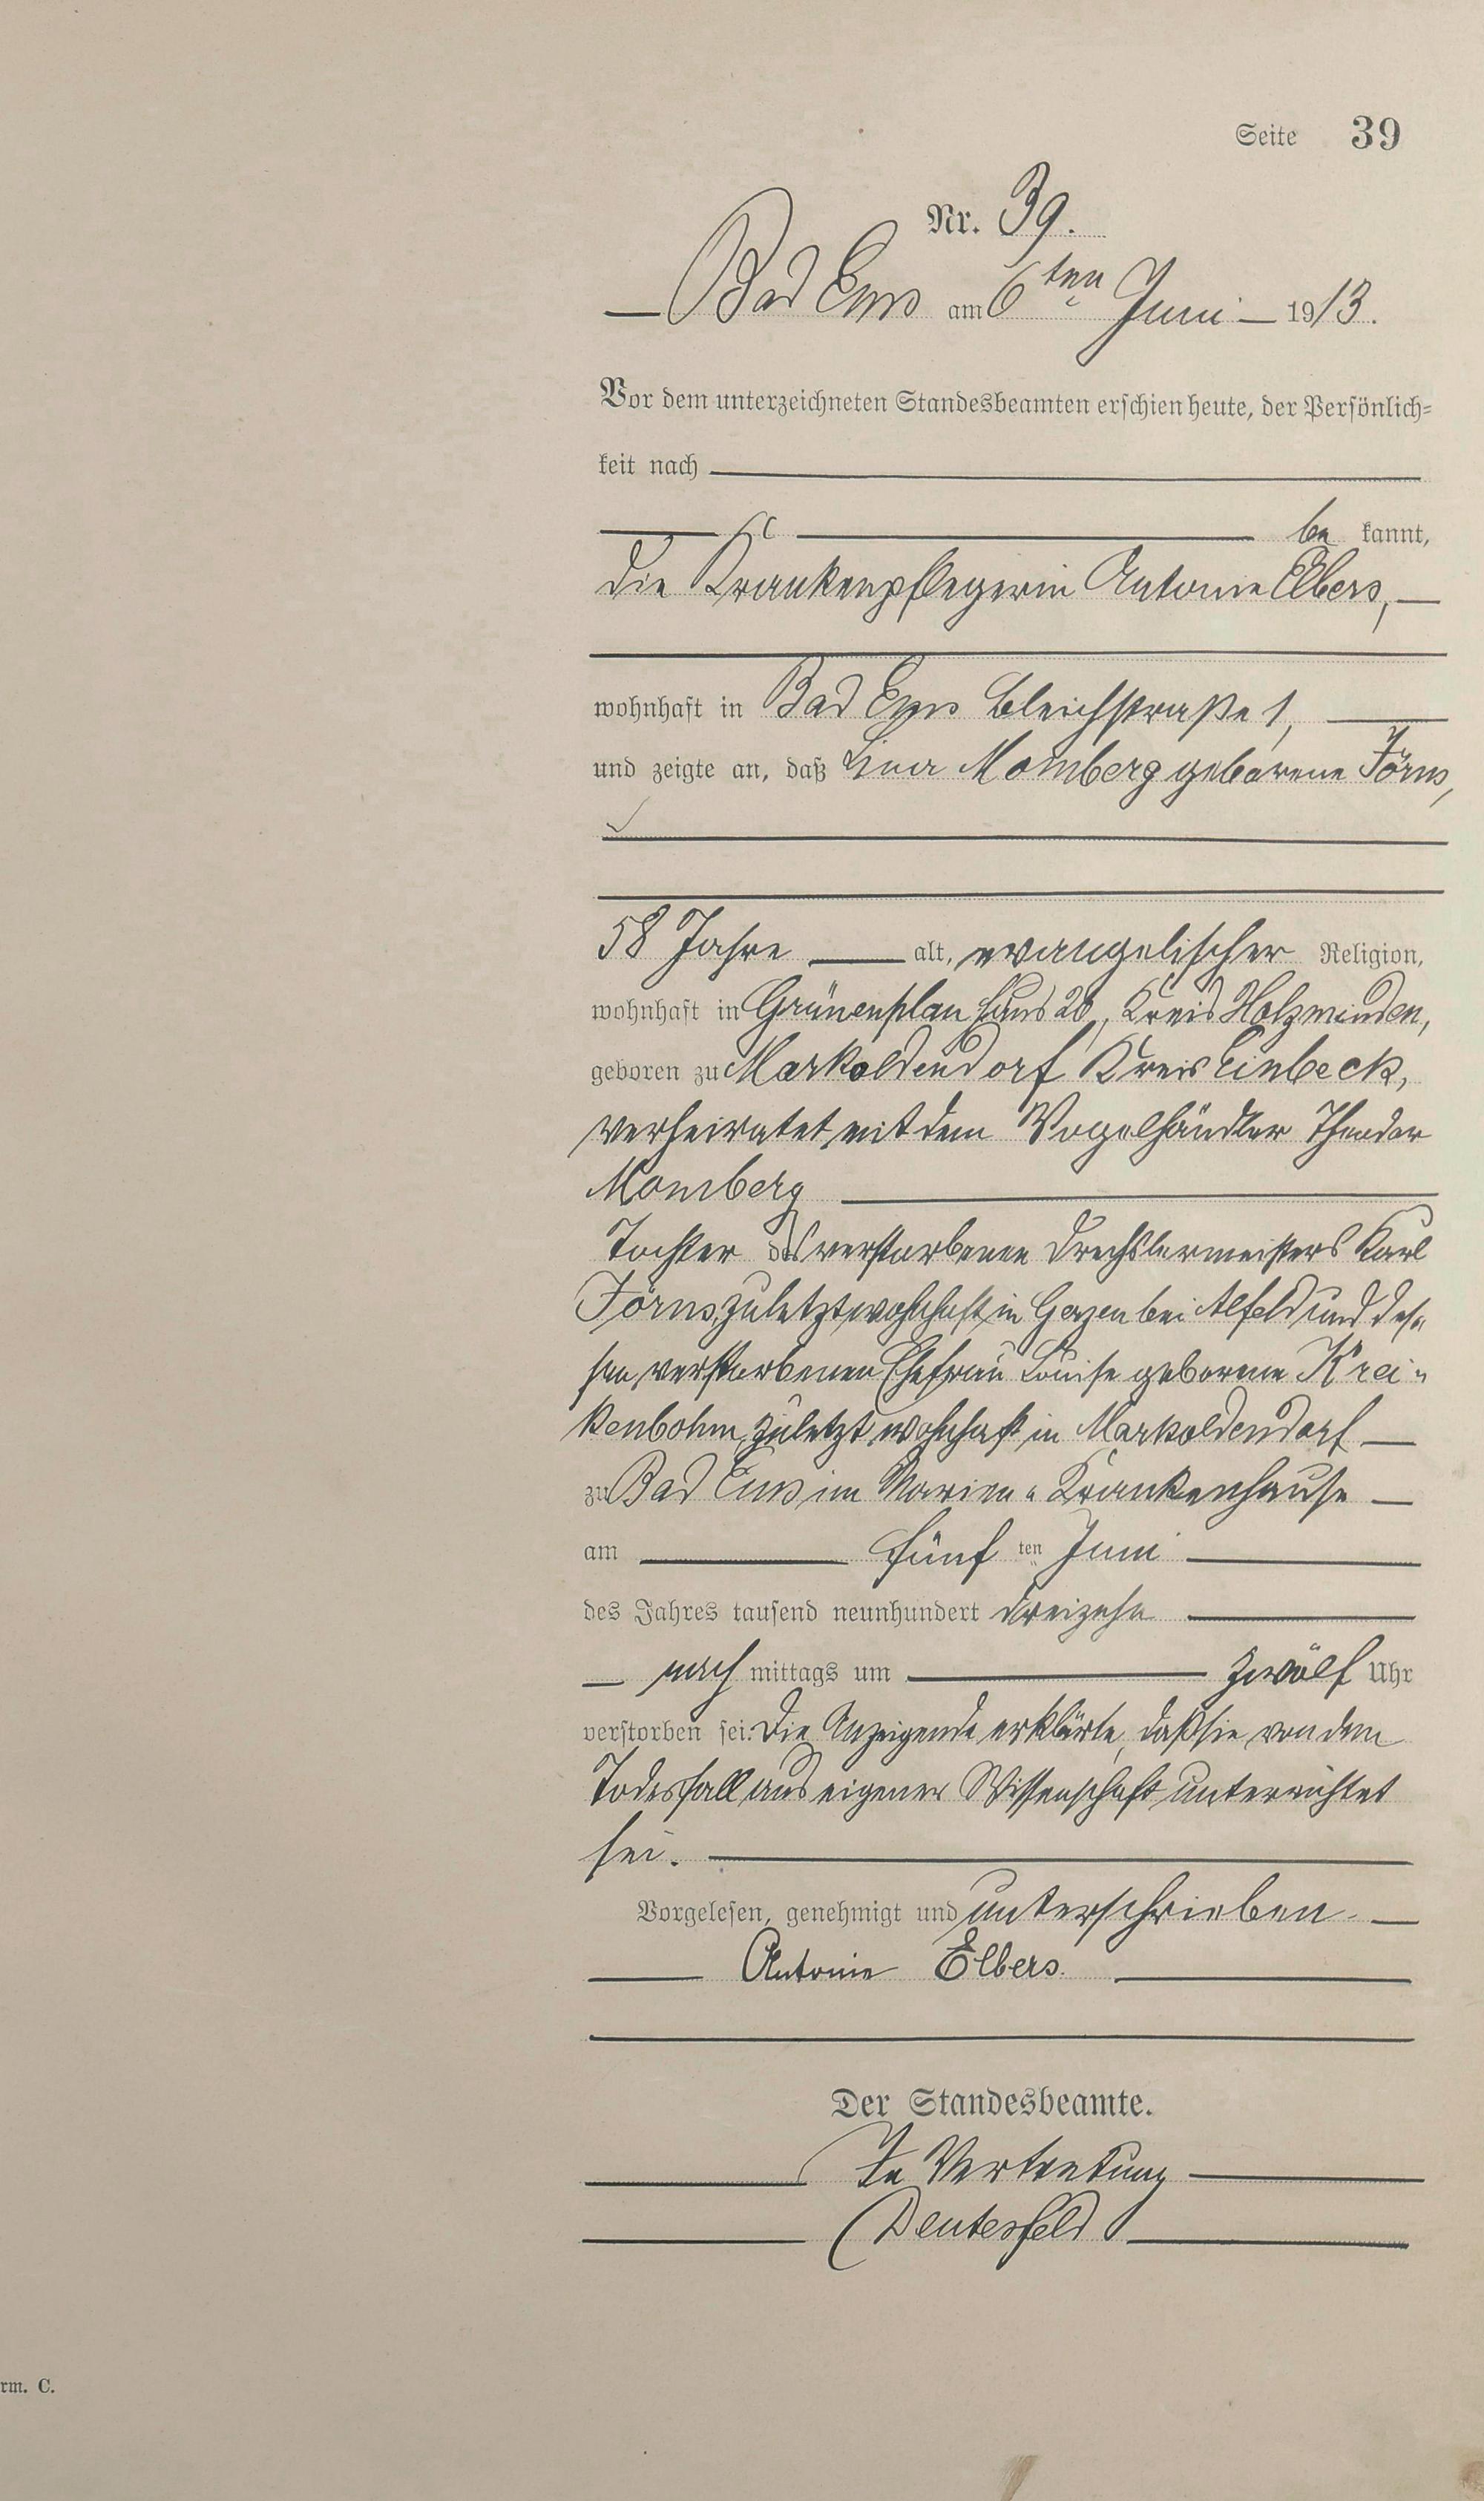 Seite 39
Nr. 39.
Bad Ems am 6ten Juni 1913.
Vor dem unterzeichneten Standesbeamten erschien heute, der Persönlich=
keit nach
be kannt,
die Krankenpflegerin Antonie Elbers,
wohnhaft in Bad Ems Bleichstraße 1,
und zeigte an, daß Lina Momberg geborene Jörns,
58 Jahre alt, evangelischer Religion,
wohnhaft in Grünenplan Haus 20, Kreis Holzminden,
geboren zu Markoldendorf Kreis Einbeck,
verheiratet mit dem Vogelhändler Theodor
Momberg
Tochter des verstorbenen Drechslermeisters Karl
Jörns, zuletzt wohnhaft in Gerzen bei Alfeld und des=
sen verstorbenen Ehefrau Louise geborene Krei=
kenbohm, zuletzt wohnhaft in Markoldendorf
zu Bad Ems im Marien=Krankenhause
am fünf ten Juni
des Jahres tausend neunhundert dreizehn
nach mittags um zwölf Uhr
verstorben sei. Die Anzeigende erklärte, daß sie von dem
Todesfall aus eigener Wissenschaft unterrichtet
sei.
Vorgelesen, genehmigt und unterschrieben.
Antonie Elbers.
Der Standesbeamte.
In Vertretung
Deutesfeld
rm. C.